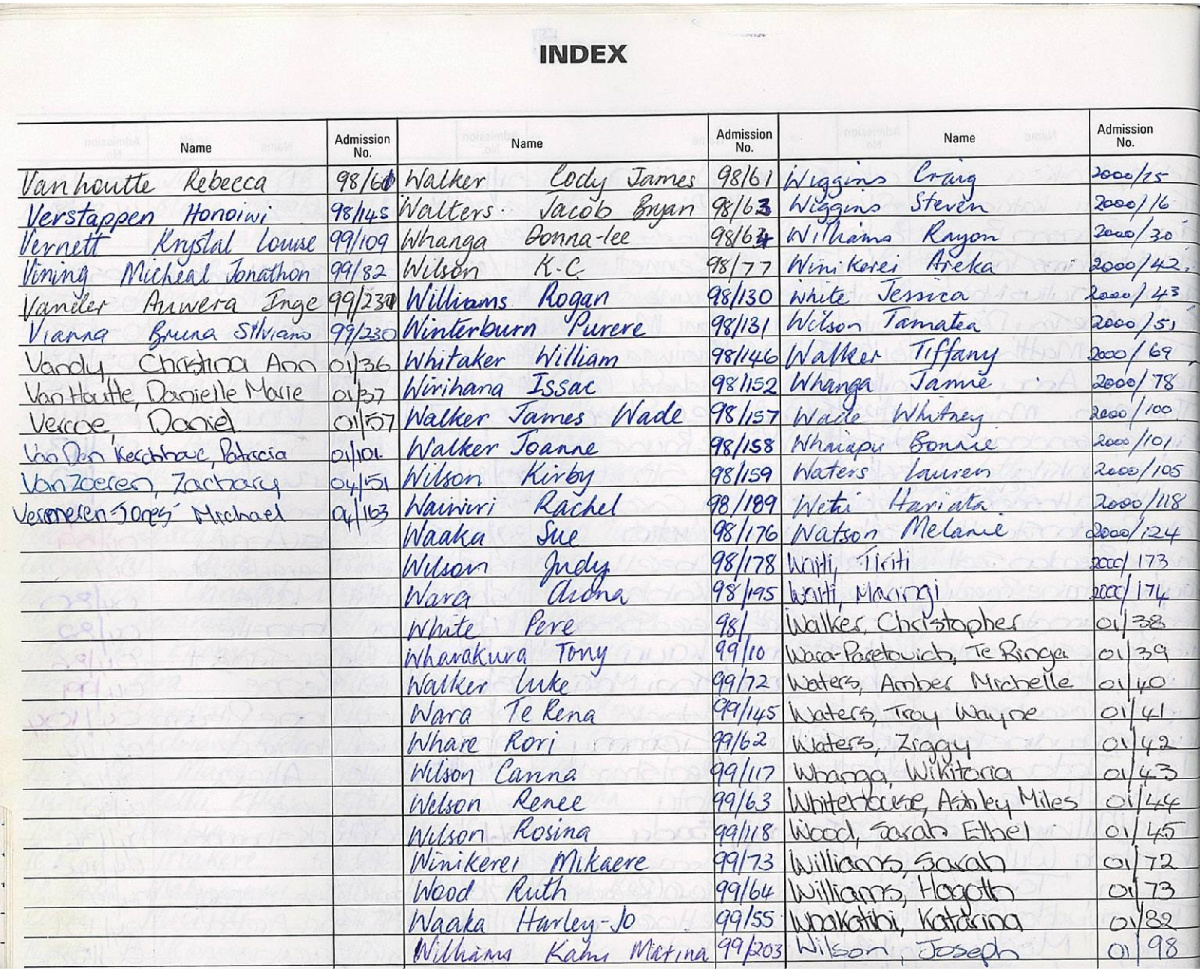 INDEX
Name Admission No. Name Admission No. Name Admission No.
Vanhoutte Rebecca 98/60 Walker Cody James 98/61 Wiggins Craig 2000/15
Verstappen Honoiwi 98/145 Walters Jacob Bryan 98/63 Wiggins Steven 2000/16
Vernett Krystal Louise 99/109 Whanga Donna-lee 98/64 Williams Rayon 2000/30
Vining Micheal Jonathon 99/82 Wilson K.C 98/77 Winikerei Areka 2000/42
Vander Auwera Inge 99/231 Williams Rogan 98/130 White Jessica 2000/43
Vianna Bruna Silviano 99/230 Winterburn Purere 98/131 Wilson Tamatea 2000/51
Vandy Christina Ann 01/36 Whitaker William 98/146 Walker Tiffany 2000/69
Van Houtte, Danielle Marie 01/37 Wirihana Issac 98/152 Whanga Jamie 2000/78
Vercoe, Daniel 01/57 Walker James Wade 98/157 Wade Whitney 2000/100
Van Den Kerchhove, Patricia 01/101 Walker Joanne 98/158 Whaiapu Bonnie 2000/101
Van Zoeren, Zachary 04/151 Wilson Kirby 98/159 Waters Lauren 2000/105
Vermeren-Jones Michael 04/163 Wainiri Rachel 98/189 Wetii Hariata 2000/118
Waaka Sue 98/176 Watson Melanie 2000/124
Wilson Judy 98/178 Waiti, Tiriti 2000/173
Wara 98/195 Waiti, Maringi 2000/174
White Pere 98/ Walker, Christopher 01/38
Wharakura Tony 99/10 Wara-Paretovich, Te Ringa 01/39
Walker Luke 99/72 Waters, Amber Michelle 01/40
Wara Te Rena 99/145 Waters, Troy Wayne 01/41
Whare Rori 99/62 Waters, Ziggy 01/42
Wilson Canna 99/117 Whanga, Wikitoria 01/43
Welson Renee 99/63 Whitehouse, Ashley Miles 01/44
Wilson Rosina 99/118 Wood, Sarah Ethel 01/45
Winikerei Mikaere 99/73 Williams, Sarah 01/72
Wood Ruth 99/64 Williams, Hogoth 01/73
Waaka Harley-Jo 99/55 Waakatihi, Katarina 01/82
Williams Kahu Matina 99/203 Wilson, Joseph 01/98